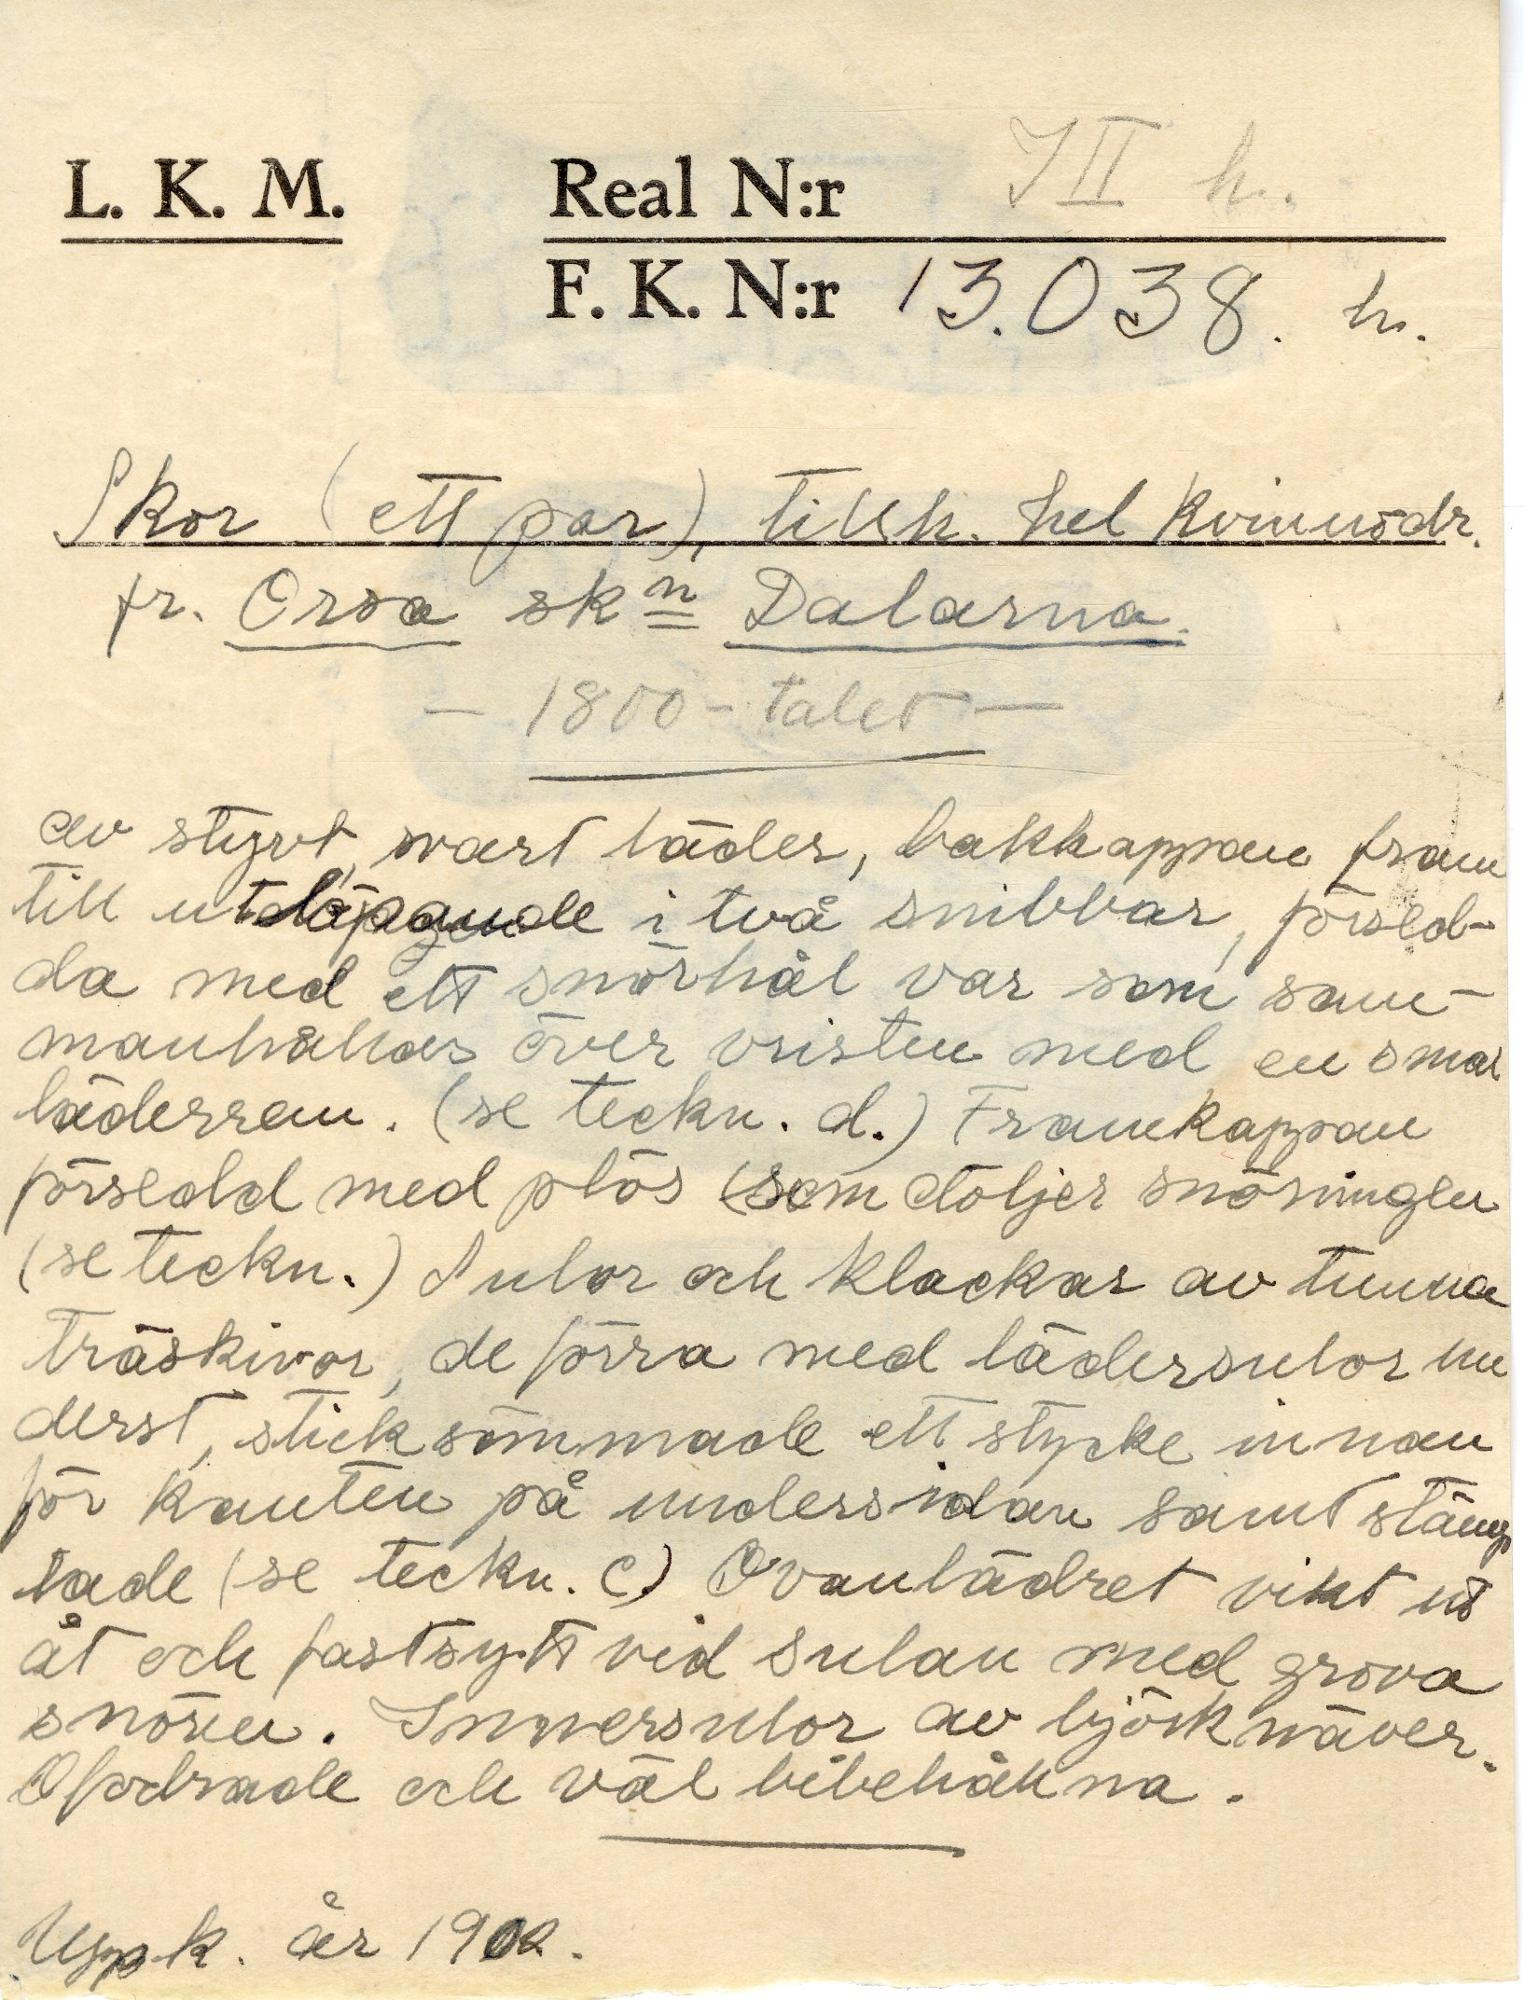 L. K. M.
Real N:r III h.
F. K. N:r 13.038. h.
Skor (ett par), tillh. hel kvinnodr.
fr. Orsa sk<u>n</u> Dalarna.
— 1800-talet —
av styvt, svart läder, bakkappan fram
till utlöpande i två snibbar, försed-
da med ett snörhål var som sam-
manhållas över vristen med en smal
läderrem. (se teckn. d.) Framkappan
försedd med plös (som döljer snörningen
(se teckn.) Sulor och klackar av tunna
träskivor, de förra med lädersulor un
derst, sticksömmade ett stycke innan
för kanten på undersidan samt stäng
lade (se teckn. c) Ovanlädret vikt ut
åt och fastsytt vid sulan med grova
snören. Innersulor av björknäver.
Ofodrade och väl bibehållna.
Uppk. år 1902.